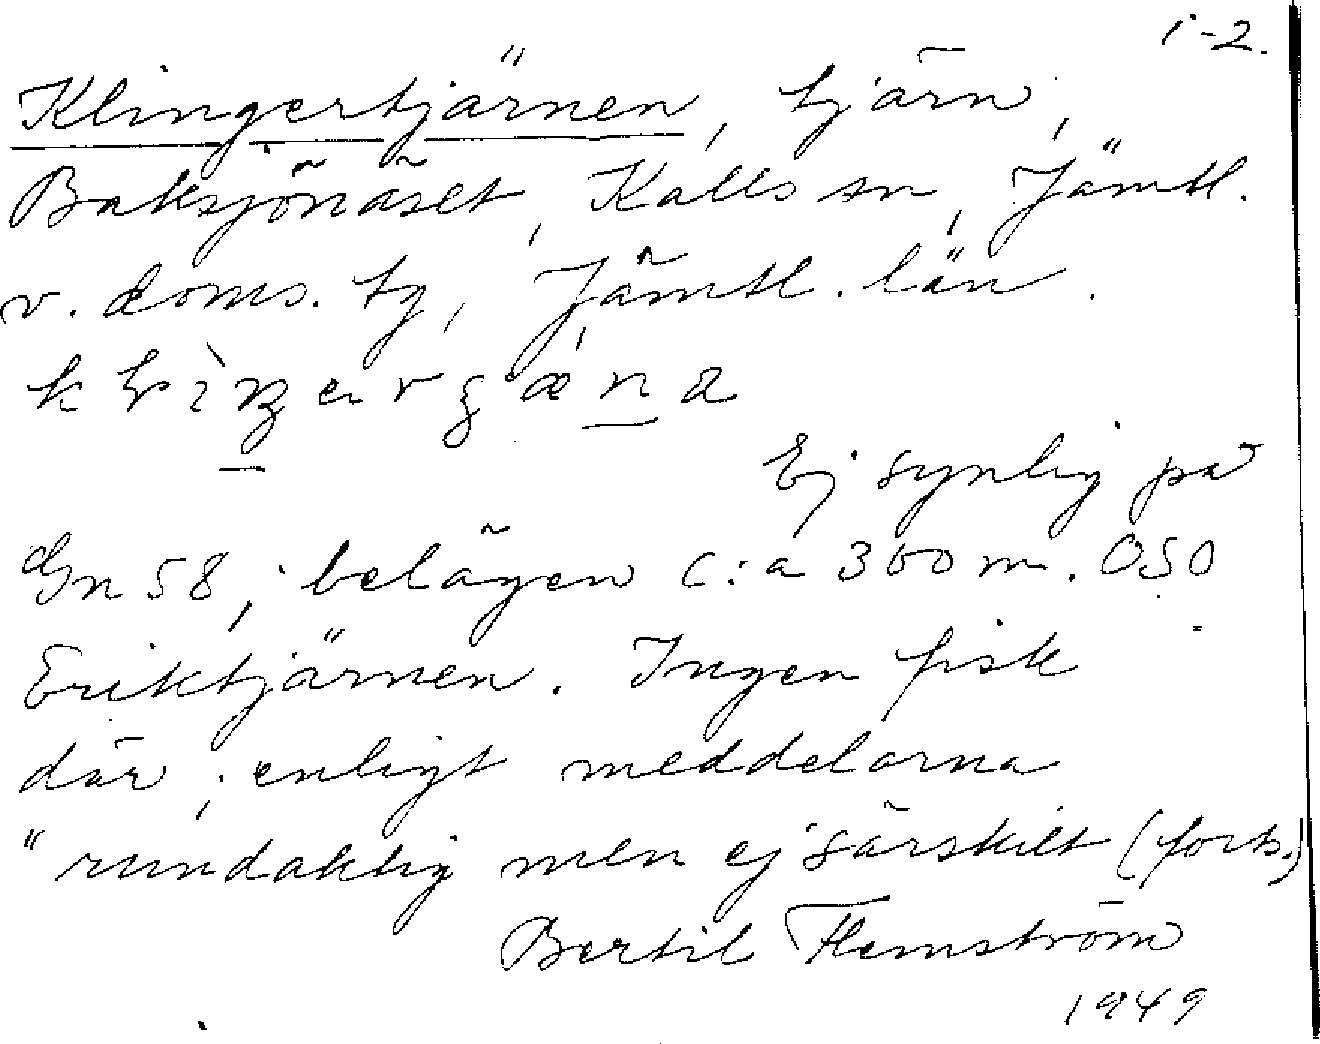 1-2.
Klingertjärnen, tjärn,
Baksjönäset, Kalls sn, Jämtl.
v. doms. tg, Jämtl. län.
Ej synlig på
Gn 58; belägen c:a 300 m. OSO
Eriktjärnen. Ingen fisk
där; enligt meddelarna
"rundaktig men ej särskilt (forts.)
Bertil Flemström
1949